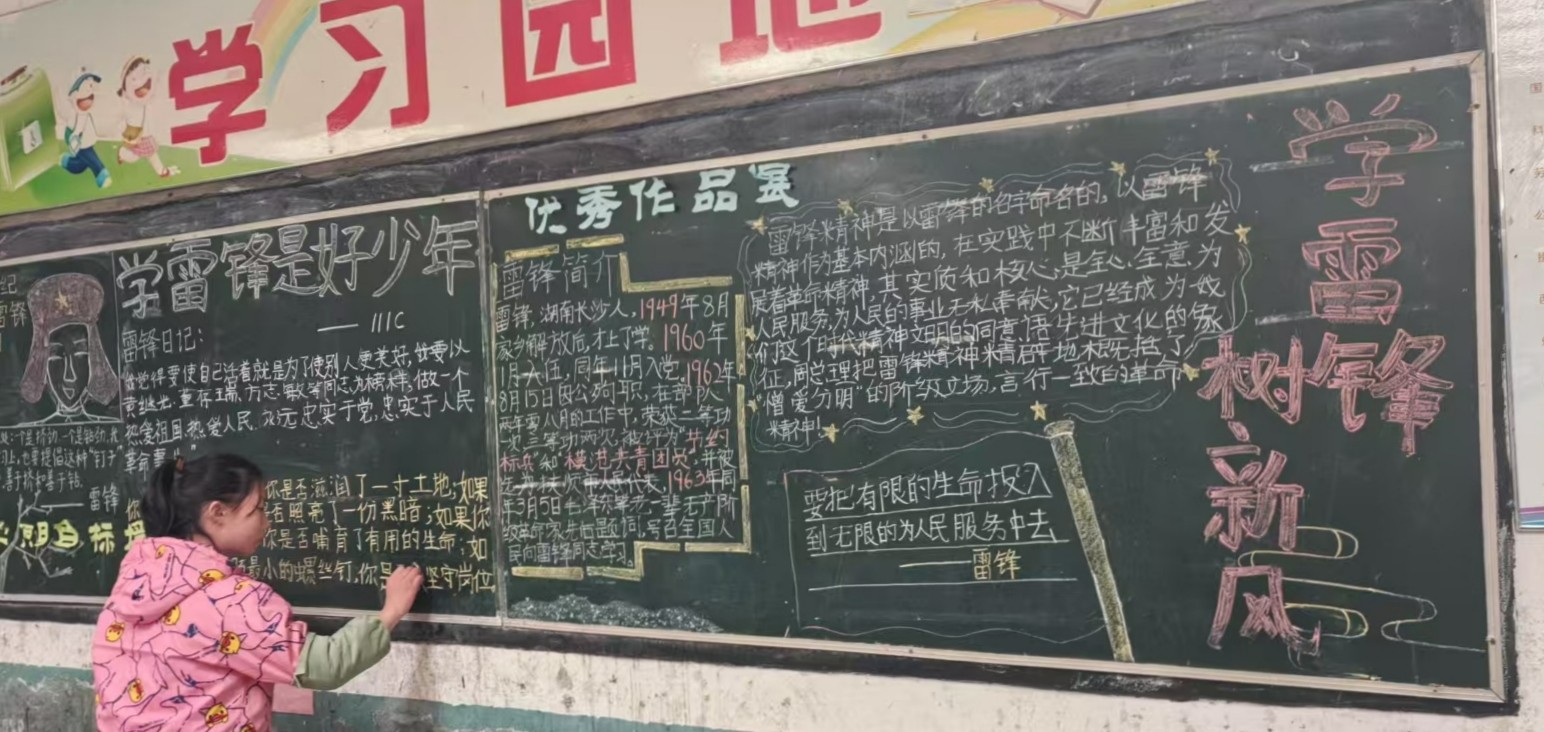 学习园地
学雷锋是好少年
—— 111C
雷锋日记:
要使自己活着就是为了使别人更美好,
黄继光、董存瑞、方志敏等同志为榜样,做一个
热爱祖国,热爱人民,永远忠实于党,忠实于人民
革命
雷锋
你是否滋润了一寸土地;如果
否照亮了一份黑暗;如果你
你是否哺育了有用的生命;如
最小的螺丝钉,你是 坚守岗位
优秀作品展
雷锋简介
雷锋,湖南长沙人,1949年8月
家乡解放后,才上了学。1960年
1月入伍,同年11月入党,1962年
8月15日因公殉职,在部队
两年零八月的工作中,荣获二等功
一次三等功两次,被评为"
标兵"和"模范共青团员",并被
代表,1963年
年3月5日毛泽东等老一辈无产阶
级革命家先后题词,号召全国人
民向雷锋同志学习。
雷锋精神是以雷锋的名字命名的,以雷锋
精神作为基本内涵的,在实践中不断丰富和发
展着革命精神,其实质和核心是全心全意为
人民服务,为人民的事业无私奉献,它已经成为我
们这个时代精神文明的同意语先进文化的
征,周总理把雷锋精神精辟地概括了
"憎爱分明"的阶级立场,言行一致的革命
精神!
要把有限的生命投入
到无限的为人民服务中去
——雷锋
学雷锋
树新风